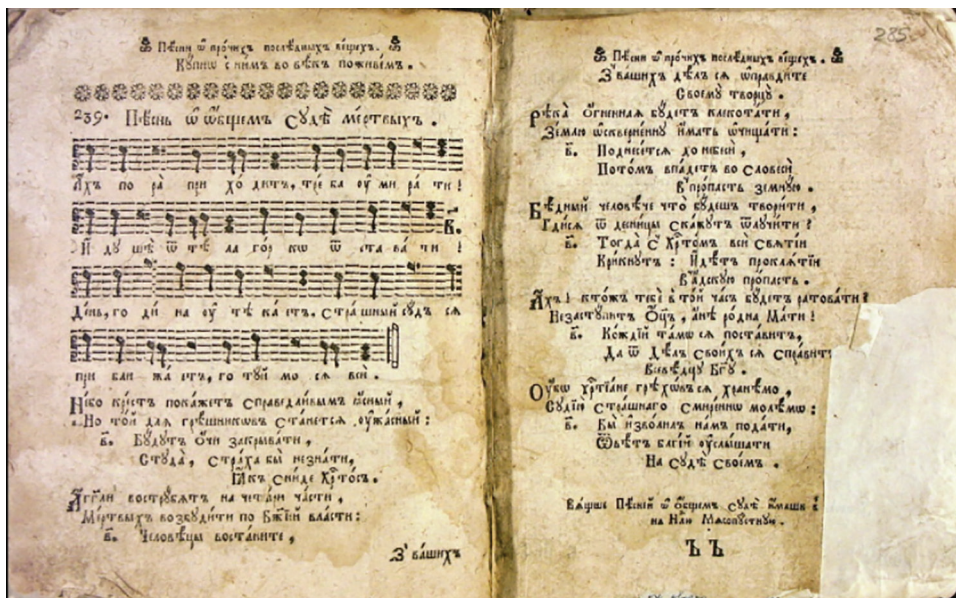 Пѣсни ѿ про́чихъ послѣ́дныхъ ве́щехъ.
Ку́пнѡ с̾ ни́мъ во вѣ́къ поживе́мъ.
239. Пѣ́снь ѿ ѻ҆́бщемъ Сꙋдѣ̀ ме́ртвыхъ.
А҆́хъ по ра̀ при хо́ дитъ, тре́ ба оу҆ ми ра́ ти!
И҆ дꙋ шѐ ѿ тѣ́ ла го́р кѡ ѿ ста ва́ ти!
Де́нь, го ди́ на оу҆ тѣ ка́ етъ. Стра́ шный сꙋ́дъ сѧ
при бли жа́ етъ, го тꙋ́й мо сѧ всѝ.
Не́бо кре́стъ пока́жетъ справедли́вымъ ꙗ҆́сный,
Но то́й длѧ грѣ́шникѡвъ ста́нетсѧ оу҆жа́сный:
в҃. Бꙋ́дꙋтъ ѻ҆́чи закрыва́ти,
Стꙋда̀, стра́ха бы̀ незна́ти,
Ꙗ҆́къ сни́де Хрⷭ҇то́съ.
А҆́гг҃ли вострꙋ́бѧтъ на чты́ри ча́сти,
Ме́ртвыхъ возбꙋди́ти по Бж҃їей вла́сти:
в҃. Человѣ́цы воста́ните,
З̾ ва́шихъ
285.
Пѣсни ѿ про́чихъ послѣ́дныхъ ве́щехъ.
З̾ ва́шихъ дѣ́лъ сѧ ѡ҆правди́те
Своемꙋ̀ творцꙋ̀.
Рѣка̀ ѻ҆́гненнаѧ бꙋ́детъ клекота́ти,
Зе́млю ѡ҆скверне́ннꙋ и҆́мать ѡ҆чища́ти:
в҃. Поднесе́тсѧ до небе́съ,
Пото́мъ впаде́тъ во словесѝ
В̾ про́пасть земнꙋ́ю.
Бѣ́дный человѣ́че что̀ бꙋ́дешъ твори́ти,
Гди́сѧ ѿ десни́цы ска́жꙋтъ ѿлꙋчи́ти?
в҃. Тогда̀ с̾ Хрⷭ҇то́мъ всѝ свѧті́и
Кри́кнꙋтъ: И҆дѣ́тъ проклѧті́и
В̾ а҆́дскꙋю про́пасть.
А҆́хъ! кто́жъ тебѣ̀ в̾ то́й ча́съ бꙋ́детъ ратова́ти?
Незастꙋ́питъ Ѻ҆ц҃ъ, а҆нѣ̀ ро́дна Ма́ти!
в҃. Ко́ждїй та́мѡ сѧ поста́витъ,
Да ѿ дѣ́лъ свои́хъ сѧ спра́витъ
Всеве́дцꙋ Бг҃ꙋ.
Оу҆́бѡ Хрⷭ҇тїа́не грѣхѡ́въ сѧ храни́мо,
Сꙋдїю̀ стра́шнаго смире́ннѡ моли́мѡ:
в҃. Бы̀ и҆зво́лилъ на́мъ пода́ти,
Ѿвѣ́тъ благі́й оу҆слы́шати
На сꙋдѣ̀ своє́мъ.
Вѧ́щше Пѣ́сней ѿ ѻ҆́бщемъ Сꙋдѣ̀ и҆́маши
на Нлⷧ҇ю Мѧсопꙋ́стнꙋю.
Ъ Ъ